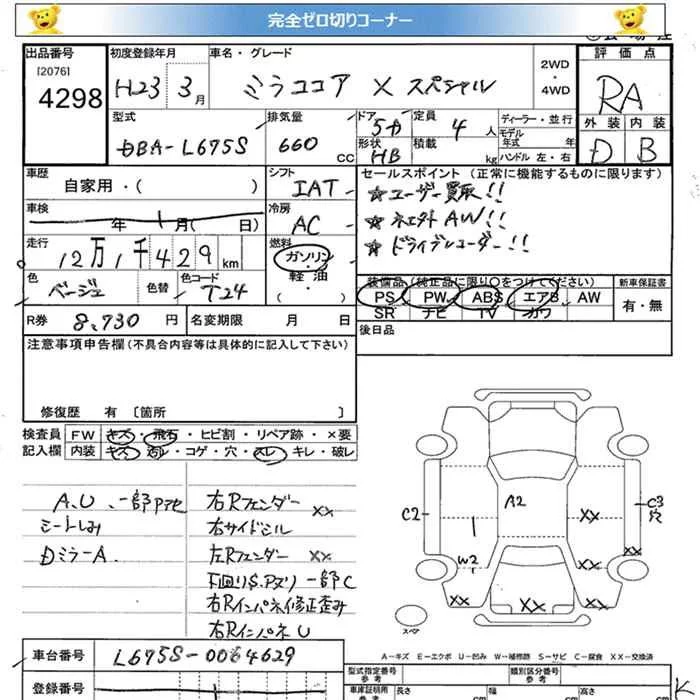 完全ゼロ切りコーナー
出品番号
[2076]
4298
初度登録年月
H23 3月
車名・グレード
ミラココア X スペシャル
2WD
・
4WD
評価点
RA
外装 内装
D B
型式
DBA-L675S
排気量
660
CC
ドア 5D
形状 HB
定員 4 人
積載 kg
ディーラー・並行
モデル
年式 年
ハンドル 左・右
車歴
自家用・( )
シフト
IAT
車検
年 月( 日)
冷房
AC
走行
12万1千429km
燃料
ガソリン
軽・油
( )
色
ベージュ
色替
色コード
T24
セールスポイント (正常に機能するものに限ります)
☆ユーザー買取!!
☆ネエ外AW!!
☆ドライブレコーダー!!
装備品(純正品に限り○をつけてください)
PS PW ABS エアB AW
SR ナビ TV カワ
新車保証書
有・無
R券 8,730 円
名変期限 月 日
後日品
注意事項申告欄(不具合内容等は具体的に記入して下さい)
修復歴 有 〔箇所 〕
検査員 FW キズ・飛石・ヒビ割・リペア跡・×要
記入欄 内装 キズ・汚レ・コゲ・穴・スレ・キレ・破レ
A.U、一部Pアセ
シートしみ
DミラーA.
右Rフェンダー XX
右サイドシル
左Rフェンダー XX
下回りS.Pヌリ 一部C
右Rインパネ修正歪み
右RインパネU
A2
C2
C3
穴
XX
XX
XX
W2
XX
XX
XX
スペア
A-キズ E-エクボ U-凹み W-補修跡 S-サビ C-腐食 XX-交換済
車台番号
L675S-0064629
登録番号
型式指定番号
参考
類別区分番号
参考
車庫証明用
参考
長さ cm
幅 cm
高さ cm